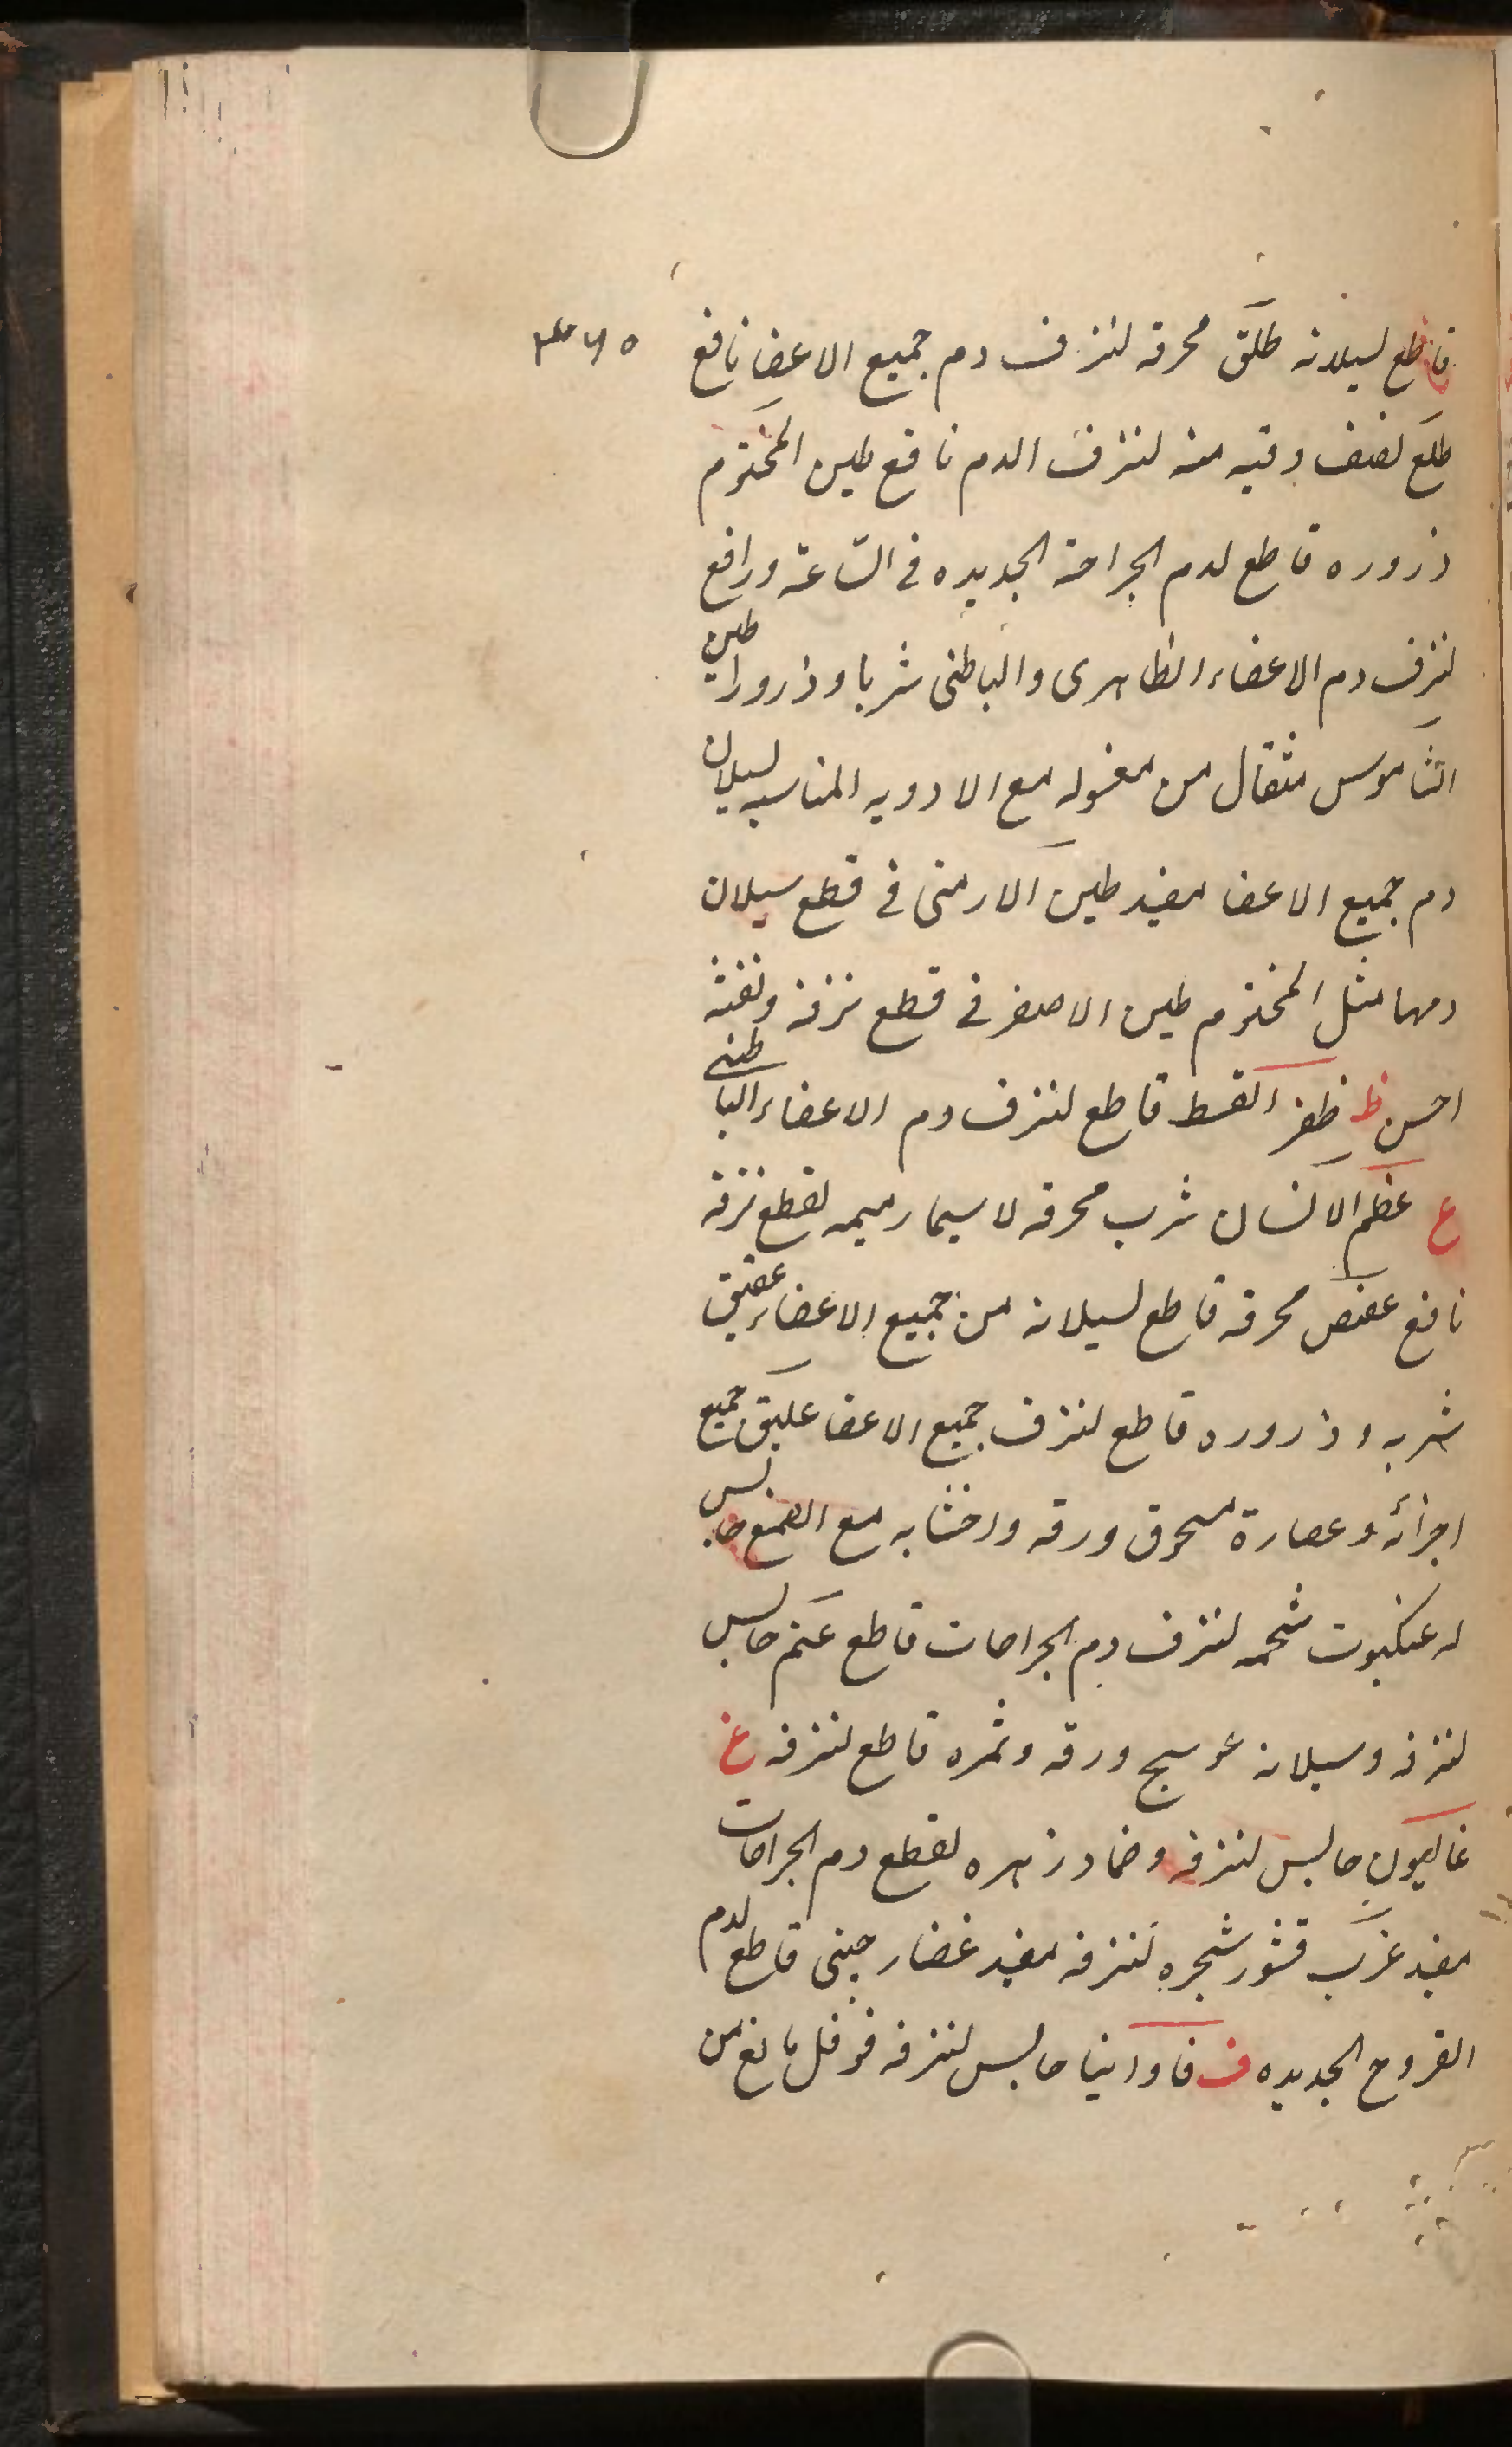 قاطع لسيلانه طلق محرقه لنزف دم جميع الاعضا نافع
طلع نصف وقيه منه لنزف الدم نافع طين المختوم
ذروره قاطع لدم الجراحة الجديده فى الساعة ورافع
لنزف دم الاعضاء الظاهرى والباطنى شربا وذرورا طين
الشاموس مثقال من مغسوله مع الادويه المناسبه لسيلان
دم جميع الاعضا مفيد طين الارمنى فى قطع سيلان
دمها مثل المختوم طين الاصفر فى قطع نزفه ونفثه
احسن ظ ظفر القسط قاطع لنزف دم الاعضاء الباطنى
ع عظم الانسان شرب محرقه لاسيما رميمه لقطع نزفه
نافع عفص محرقه قاطع لسيلانه من جميع الاعضاء عقيق
شربه وذروره قاطع لنزف جميع الاعضا عليق جميع
اجزائه وعصارة مسحوق ورقه واخشابه مع الصمغ حابس
له عنكبوت شحمه لنزف دم الجراحات قاطع عنم حابس
لنزفه وسيلانه عوسج ورقه وثمره قاطع لنزفه غ
غاليون حابس لنزفه وضماد زهره لقطع دم الجراحات
مفيد غرب قشور شجره لنزفه مفيد غضار چينى قاطع لدم
القروح الجديده ف فاوانيا حابس لنزفه فوفل مانع من